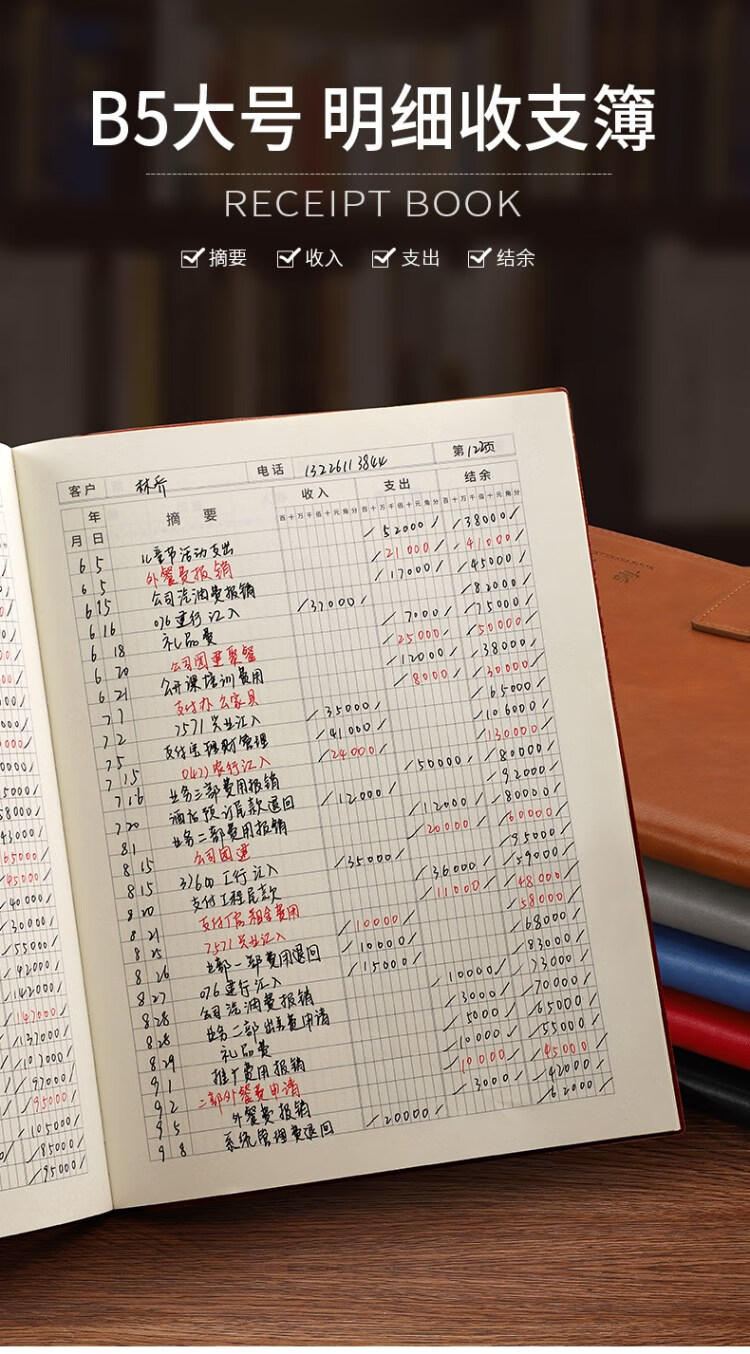 B5大号 明细收支簿
RECEIPT BOOK
摘要 收入 支出 结余
客户 林乔 电话 13226113844 第123页
年 摘要 收入 支出 结余
月 日 百十万千佰十元角分 百十万千佰十元角分 百十万千佰十元角分
6 5 儿童节活动支出 52000 38000
6 5 外餐费报销 21000 41000
6 15 公司汽油费报销 17000 45000
6 16 076建行汇入 37000 82000
6 18 礼品费 7000 75000
6 20 公司团建聚餐 25000 50000
6 21 公开课培训费用 12000 38000
7 1 支付办公家具 8000 30000
7 2 7571兴业汇入 35000 65000
7 5 支付宝理财管理 41000 106000
7 15 0422农行汇入 24000 130000
7 16 业务三部费用报销 50000 80000
7 20 酒店预订尾款退回 12000 92000
8 1 业务二部费用报销 12000 80000
8 15 公司团建 20000 60000
8 15 32600工行汇入 35000 95000
8 20 支付工程尾款 36000 59000
8 21 支付厂房租金费用 11000 48000
8 25 7571兴业汇入 10000 58000
8 26 业部一部费用退回 10000 68000
8 27 076建行汇入 15000 83000
8 28 公司汽油费报销 10000 73000
8 28 业务二部出差费申请 3000 70000
8 29 礼品费 5000 65000
9 1 推广费用报销 10000 55000
9 2 二部外餐费申请 10000 45000
9 5 外餐费报销 3000 42000
9 8 系统管理费退回 20000 62000